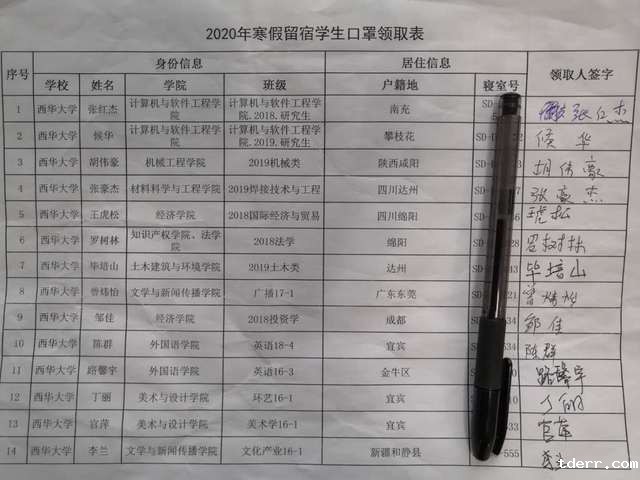 2020年寒假留宿学生口罩领取表
序号 身份信息 居住信息 领取人签字
学校 姓名 学院 班级 户籍地 寝室号
1 西华大学 张红杰 计算机与软件工程学院 计算机与软件工程学院.2018.研究生 南充 SD- 张红杰
2 西华大学 候华 计算机与软件工程学院 计算机与软件工程学院.2019.研究生 攀枝花 SD- 2 候华
3 西华大学 胡伟豪 机械工程学院 2019机械类 陕西咸阳 SD- 胡伟豪
4 西华大学 张豪杰 材料科学与工程学院 2019焊接技术与工程 四川达州 SD- 7 张豪杰
5 西华大学 王虎松 经济学院 2018国际经济与贸易 四川绵阳 SD- 6 琥松
6 西华大学 罗树林 知识产权学院、法学院 2018法学 绵阳 SD- 罗树林
7 西华大学 毕培山 土木建筑与环境学院 2019土木类 达州 SD- 43 毕培山
8 西华大学 曾炜怡 文学与新闻传播学院 广播17-1 广东东莞 SD- 21 曾炜怡
9 西华大学 邹佳 经济学院 2018投资学 成都 SD- 534 邹佳
10 西华大学 陈群 外国语学院 英语18-4 宜宾 SD- 534 陈群
11 西华大学 路馨宇 外国语学院 英语16-3 金牛区 SD- 0 路馨宇
12 西华大学 丁丽 美术与设计学院 环艺16-1 宜宾 SD- 10 丁丽
13 西华大学 官萍 美术与设计学院 美术学16-1 宜宾 SD- 33 官萍
14 西华大学 李兰 文学与新闻传播学院 文化产业16-1 新疆和静县 555
tderr.com